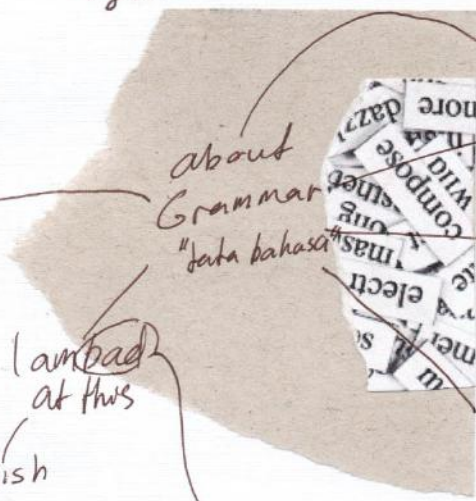 about
Grammar
"tata bahasa"
I am bad
at this
ish
more
dazz
compose
wild
electr